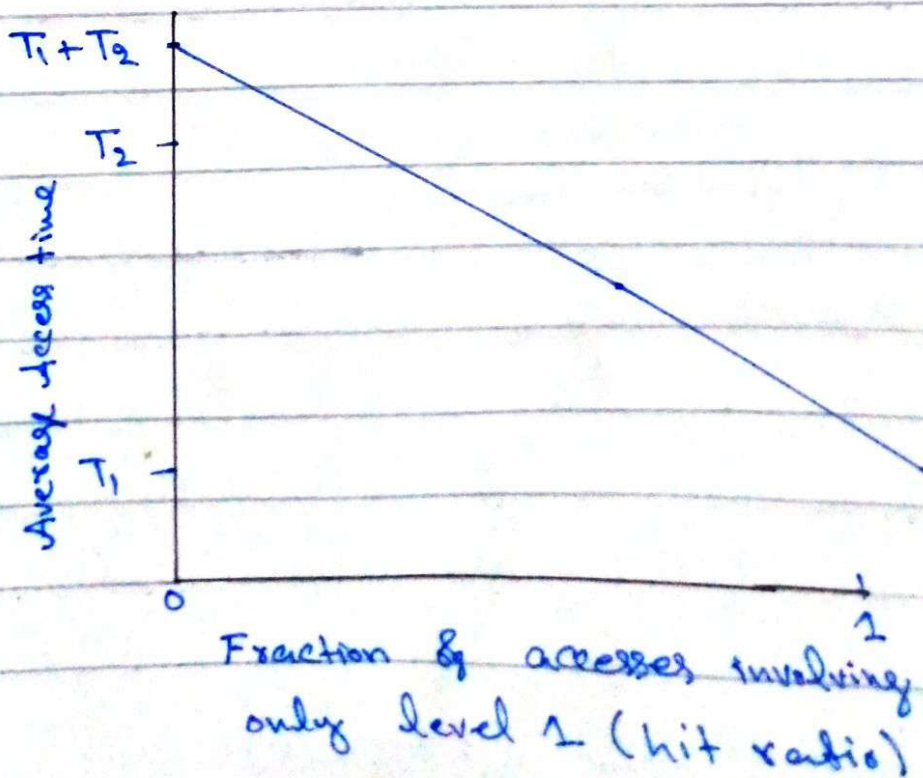 T₁ + T₂
T₂
Average Access time
T₁
0
1
Fraction of accesses involving
only level 1 (hit ratio)